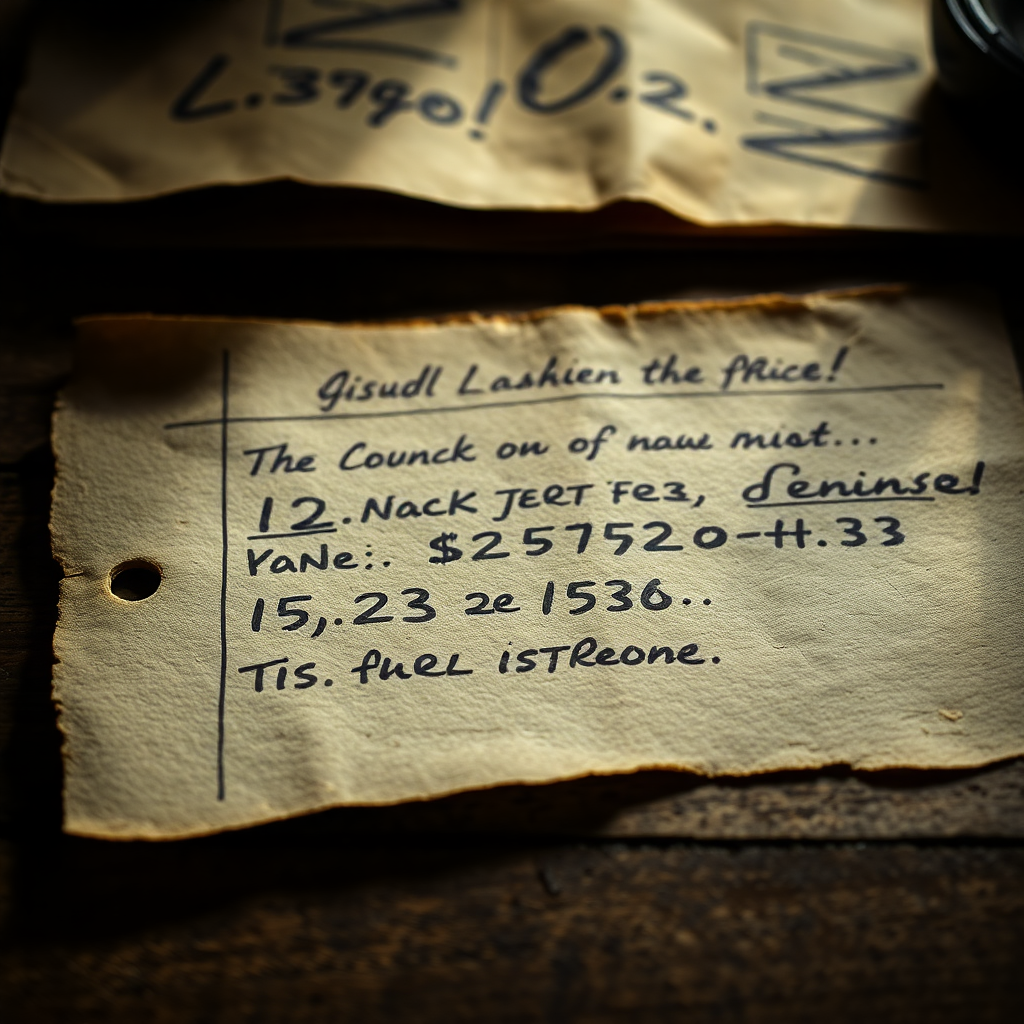 L.3790! O.2.
Gisudl Lashien the fRice!
The Counck on of naue miat...
12. Nack JEET Fe3, Seninse!
YaNe:. $257520-H.33
15,.23 2e 1536..
Tis. fuel isTReone.